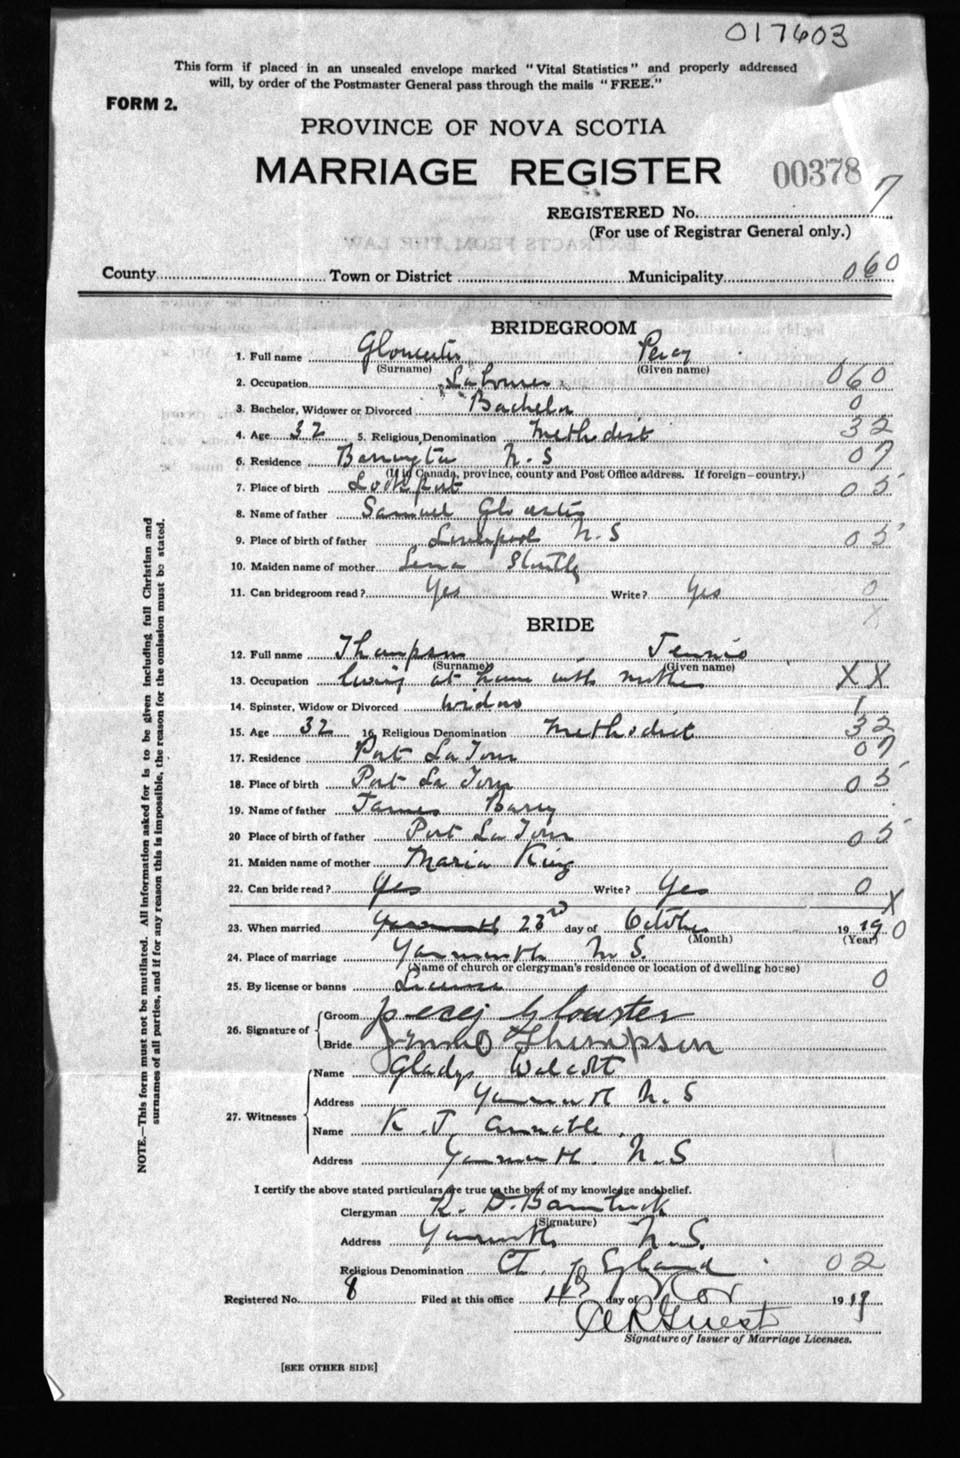 017603
This form if placed in an unsealed envelope marked "Vital Statistics" and properly addressed
will, by order of the Postmaster General pass through the mails "FREE."
FORM 2.
PROVINCE OF NOVA SCOTIA
MARRIAGE REGISTER 00378
REGISTERED No. 7
(For use of Registrar General only.)
County Town or District Municipality 060
BRIDEGROOM
1. Full name Gloucester Percy
(Surname) (Given name)
2. Occupation Labourer 060
3. Bachelor, Widower or Divorced Bachelor 0
4. Age 32 5. Religious Denomination Methodist 32
6. Residence Barrington N.S 07
(If in Canada, province, county and Post Office address. If foreign—country.)
7. Place of birth Lockeport 05
8. Name of father Samuel Gloucester
9. Place of birth of father Liverpool N.S 05
10. Maiden name of mother Lena
11. Can bridegroom read? Yes Write? Yes 0
X
BRIDE
12. Full name Thompson Jennie
(Surname) (Given name)
13. Occupation living at home with mother XX
14. Spinster, Widow or Divorced widow 1
15. Age 32 16. Religious Denomination Methodist 32
17. Residence Port La Tour 07
18. Place of birth Port La Tour 05
19. Name of father James Barry
20 Place of birth of father Port La Tour 05
21. Maiden name of mother Maria King
22. Can bride read? Yes Write? Yes 0
X
23. When married Yarmouth 23rd day of October 1919 0
(Month) (Year)
24. Place of marriage Yarmouth N.S.
(Name of church or clergyman's residence or location of dwelling house)
25. By license or banns License 0
26. Signature of Groom Percy Gloucester
Bride Thompson
27. Witnesses Name Gladys
Address Yarmouth N.S
Name K. J.
Address Yarmouth. N.S
I certify the above stated particulars are true to the best of my knowledge and belief.
Clergyman R. D. Bambrick
(Signature)
Address Yarmouth N.S.
Religious Denomination Ch of England 02
Registered No. 8 Filed at this office 4th day of Nov 1919
Guest
Signature of Issuer of Marriage Licenses.
[SEE OTHER SIDE]
NOTE.—This form must not be mutilated. All information asked for is to be given including full Christian and
surnames of all parties, and if for any reason this is impossible, the reason for the omission must be stated.